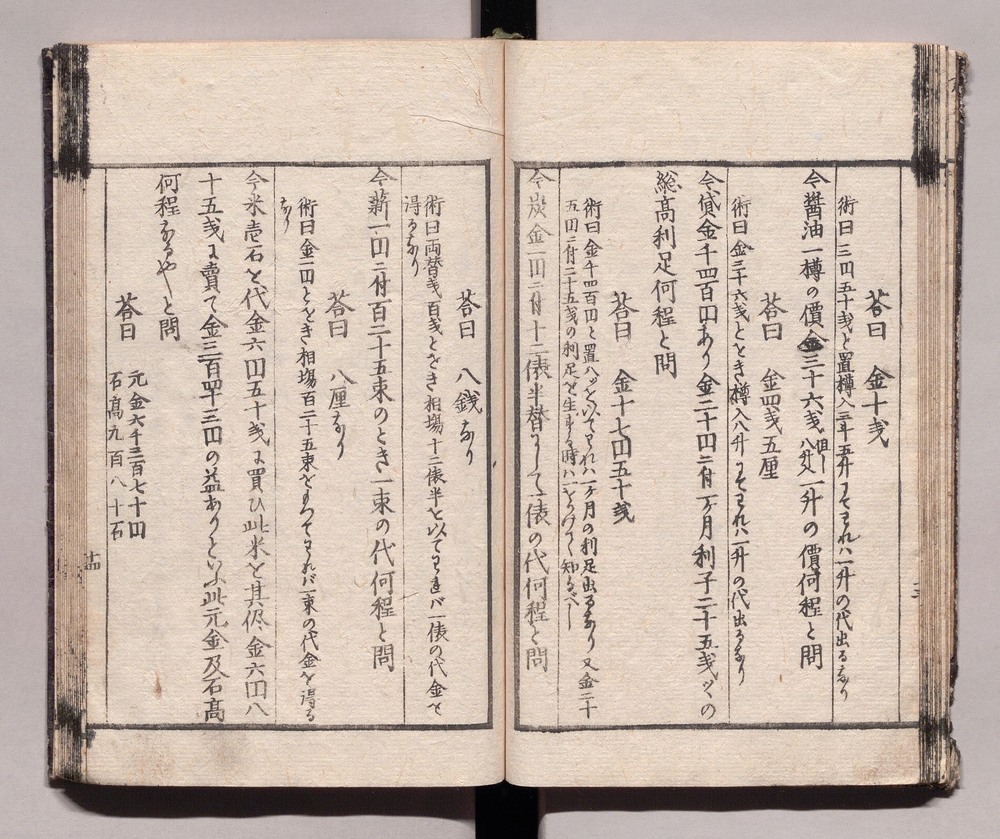 答曰　金十戔
術曰三円五十戔と置樽入三斗五升にてわれハ一升の代出るなり
今醤油一樽の價金三十六戔但し八升入一升の價何程と問
答曰　金四戔五厘
術曰金三十六戔とおき樽入八升にてわれハ一升の代出るなり
今貸金千四百円あり金二十円ニ付一ヶ月利子二十五戔ツヽの
総高利足何程と問
答曰　金十七円五十戔
術曰金千四百円と置八ッを以てわれハ一ヶ月の利足出るなり又金二十
五円ニ付二十五戔の利足を生する時ハ知るべし
今炭金一円ニ付十二俵半替にして一俵の代何程と問
答曰　八銭なり
術曰両替戔百戔とおき相場十二俵半を以てわれバ一俵の代金を
得るなり
今薪一円ニ付百二十五束のとき一束の代何程と問
答曰　八厘なり
術曰金一円とおき相場百二十五束をもつてわれバ一束の代金を得る
なり
今米壱石を代金六円五十戔に買ひ此米を其侭金六円八
十五戔に賣て金三百四十三円の益ありといふ此元金及石高
何程なるやと問
答曰　元金六千三百七十円
石高九百八十石
十四